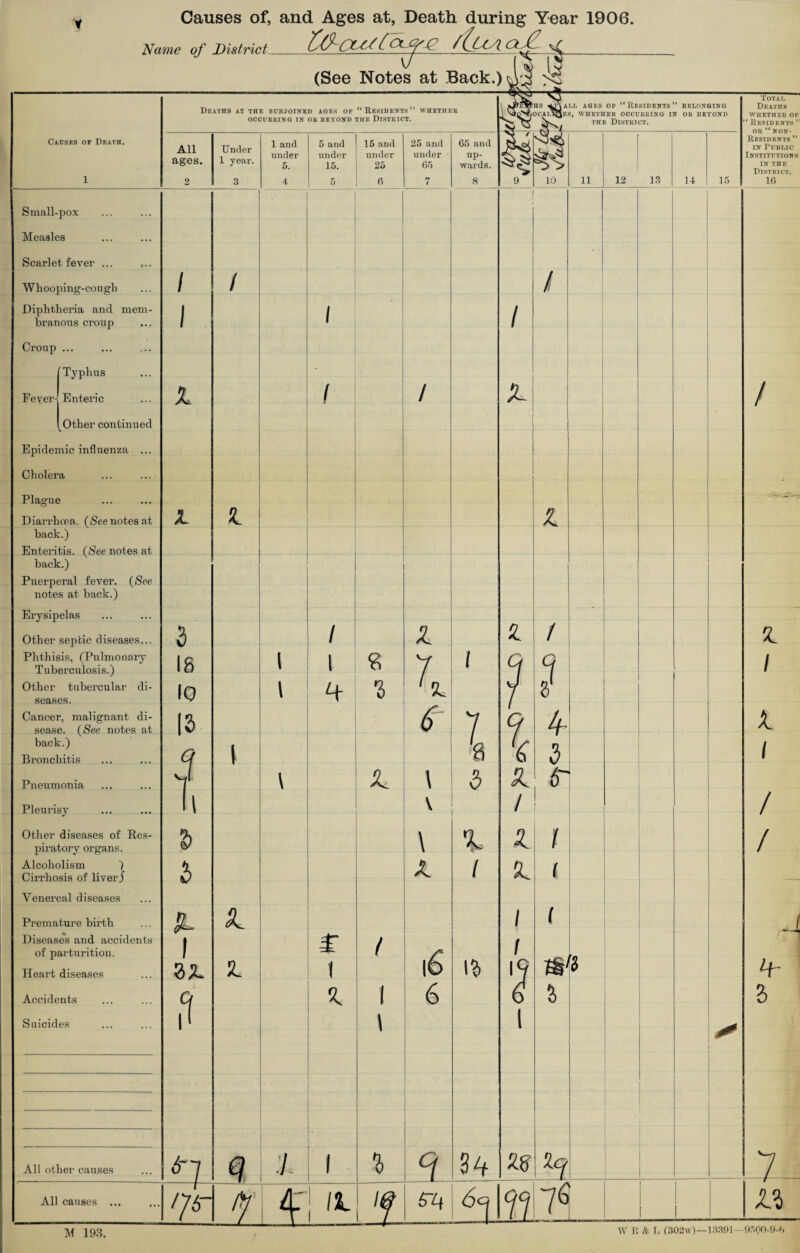 Causes of, and Ages at, Death during Year 1906.
Name of District
(See Notes at Back.)
Causes of Death.
1
Deaths at the subjoined ages of "Residents" whether occurring in or beyond the District.
All ages.
2
Under 1 year.
3
1 and under 5.
4
5 and under 15.
5
15 and under 25
6
25 and under 65
7
65 and upwards.
8
all ages of "Residents" belonging
whether occurring in or beyond
the District.
9 10 11 12 13 14 15
Total Deaths whether of "Residents" or "non-Residents" in Public Institutions in the District.
16
Small-pox
Measles
Scarlet fever ...
Whooping-cough ... 1 1 1
Diphtheria and membranous croup ... 1 1 1
Croup ...
Fever Typhus ...
Enteric ... 2 1 1 2 1
Other continued
Epidemic influenza ...
Cholera
Plague
Diarrhœa. (See notes at back.) 2 2 2
Enteritis. (See notes at back.)
Puerperal fever. (See notes at back.)
Erysipelas
Other septic diseases... 3 1 2 2 1 2
Phthisis, (Pulmonary Tuberculosis.) 18 1 1 8 7 1 9 9 1
Other tubercular diseases. 10 1 4 3 2 7 3
Cancer, malignant disease. (See notes at back.) 13 6 7 9 4 2
Bronchitis ... 9 1 8 6 3 1
Pneumonia ... 7 1 2 1 3 2 5
Pleurisy ... 1 1 1 1
Other diseases of Respiratory organs. 3 1 2 2 1 1
Alcoholism } Cirrhosis of liver 3 2 1 2 1
Venereal diseases
Premature birth ... 2 2 1 1
Diseases and accidents of parturition. 1 1 1
Heart diseases ... 32 2 1 16 13 19 13 4
Accidents ... 9 2 1 6 6 3 3
Suicides ... 1 1 1
All other causes ... 57 9 1 1 3 9 34 28 29 7
All causes ... 175 17 4 12 19 54 69 99 76 23
M 193.
W B & L (302w)—13391—9500-9-6